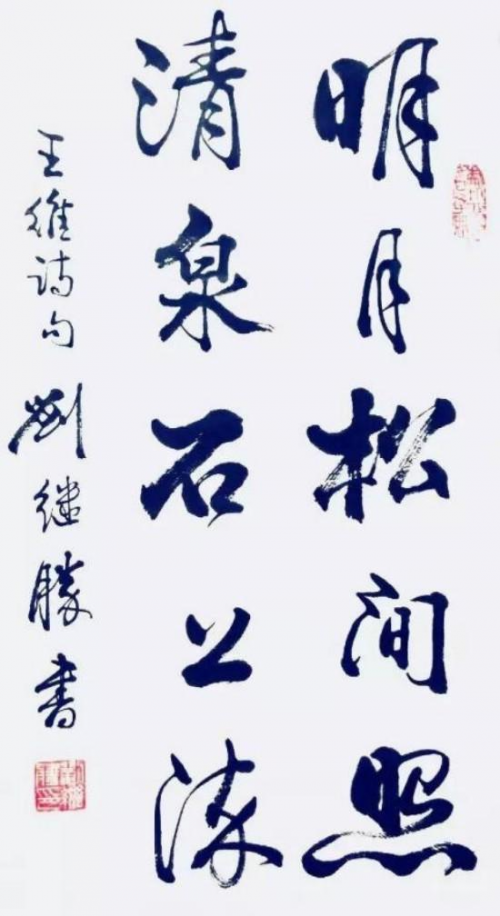 明月松间照
清泉石上流
王维诗句 刘继胜书